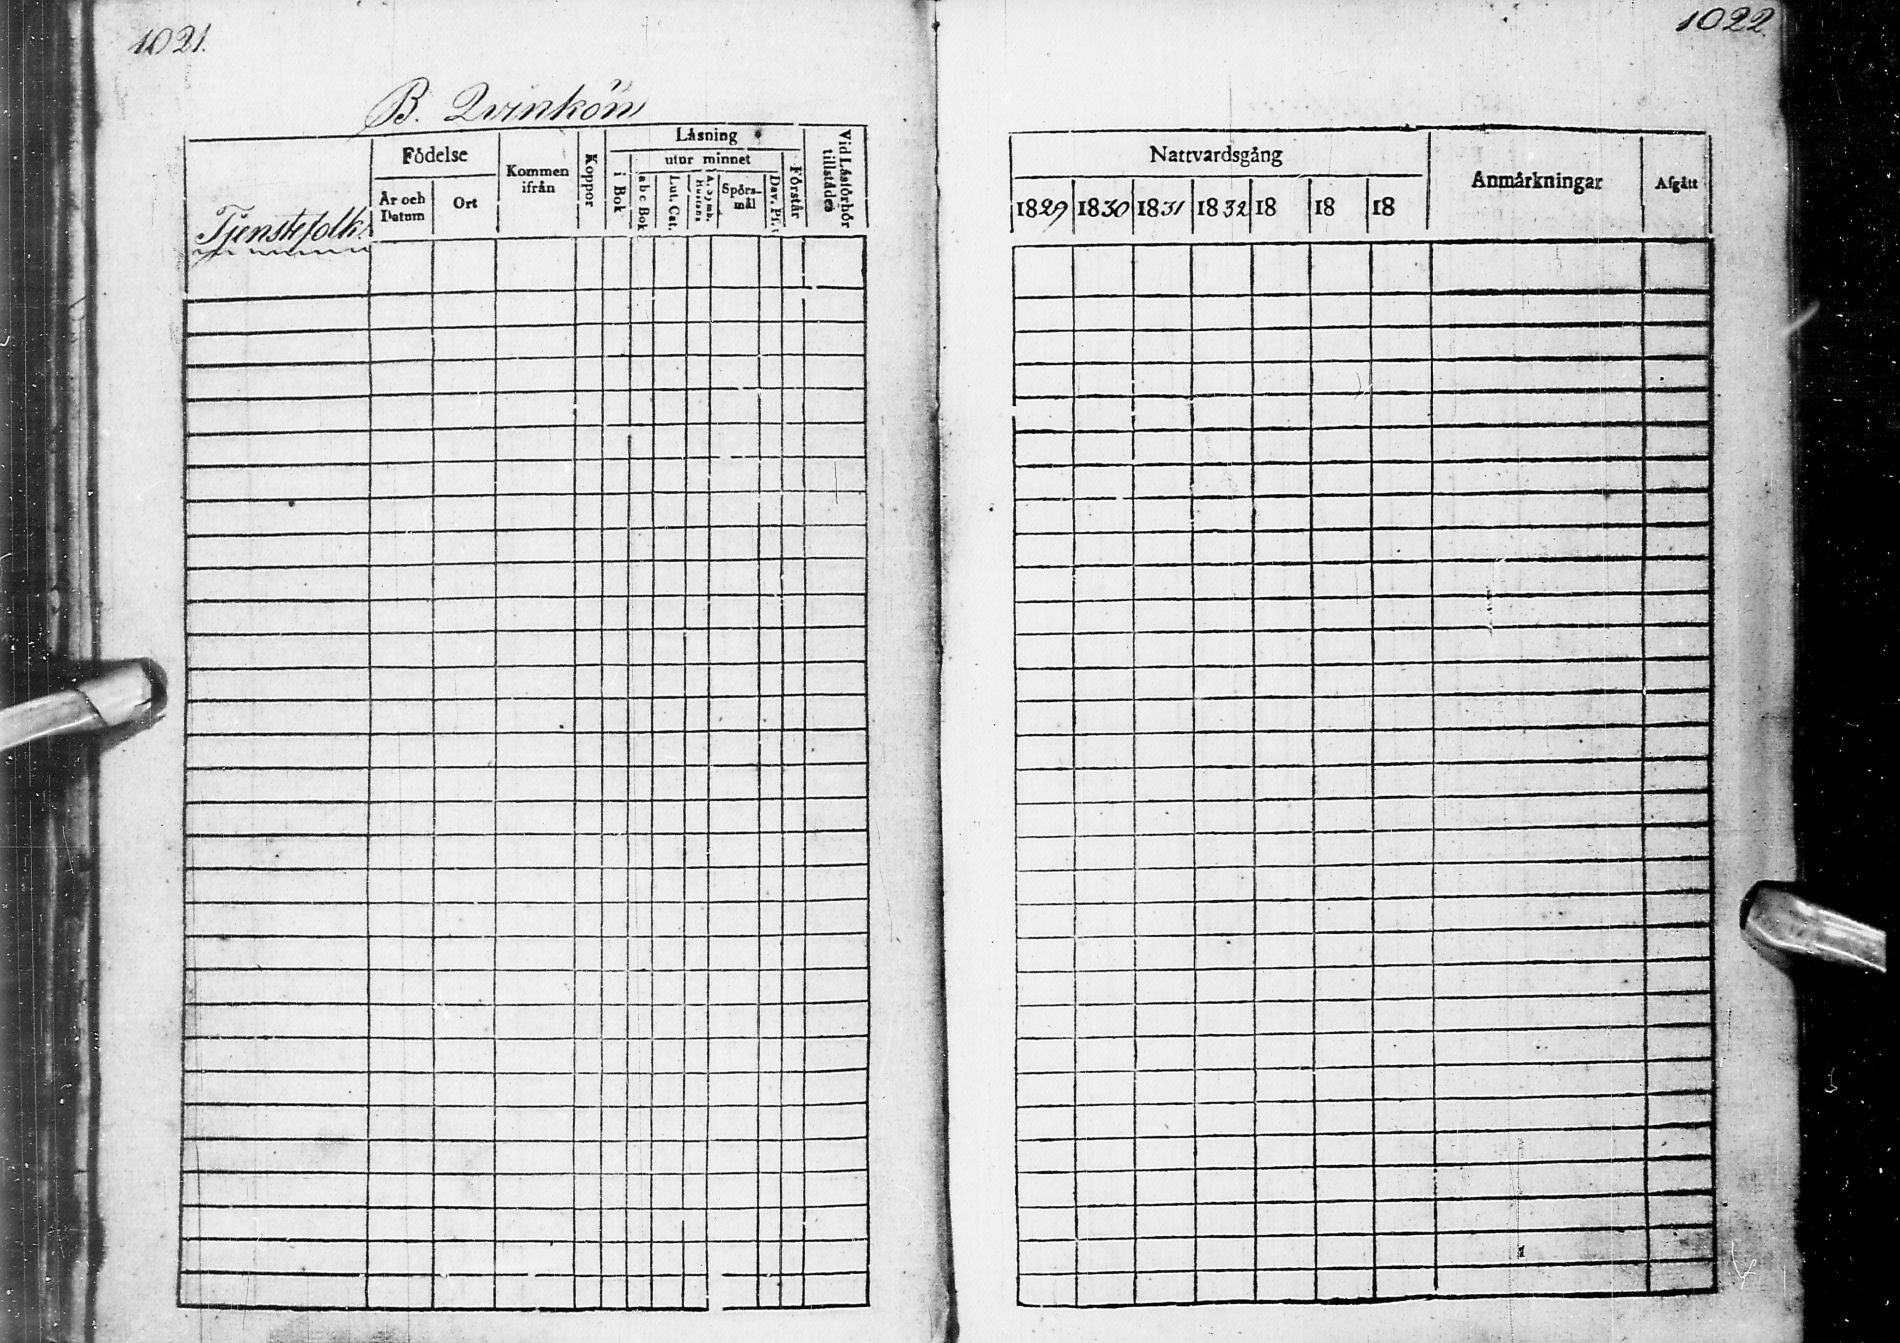 1021.
B. Qvinkön
Tjenstefolk
Födelse
År och Datum
Ort
Kommen ifrån
Koppor
Låsning
i Bok
utur minnet
a b c Bok
Lut. Cat.
A. Symb.
Hustafla
Spörs-
mål
Dav. Ps.
Förstår
Vid Låsförhör
tillstädes
1022
Nattvardsgång
1829 1830 1831 1832 18 18 18
Anmårkningar
Afgått